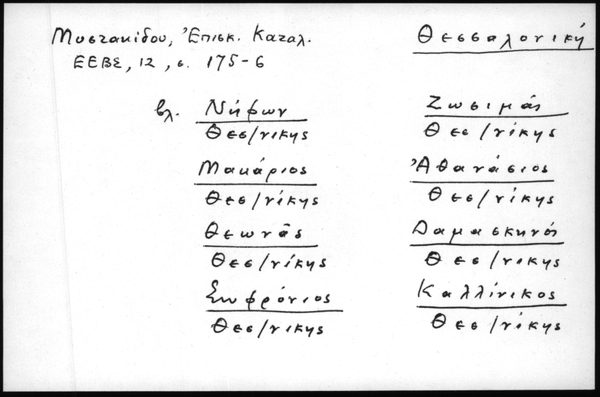 Μυστακίδου, Ἐπισκ. Καταλ.
ΕΕΒΣ, 12, σ. 175-6
Θεσσαλονική
βλ. Νήφων
Θεσ/νίκης
Μακάριος
Θεσ/νίκης
Θεωνᾶς
Θεσ/νίκης
Σωφρόνιος
Θεσ/νικης
Ζωσιμάς
Θεσ/νίκης
Ἀθανάσιος
Θεσ/νίκης
Δαμασκηνός
Θεσ/νικης
Καλλίνικος
Θεσ/νίκης